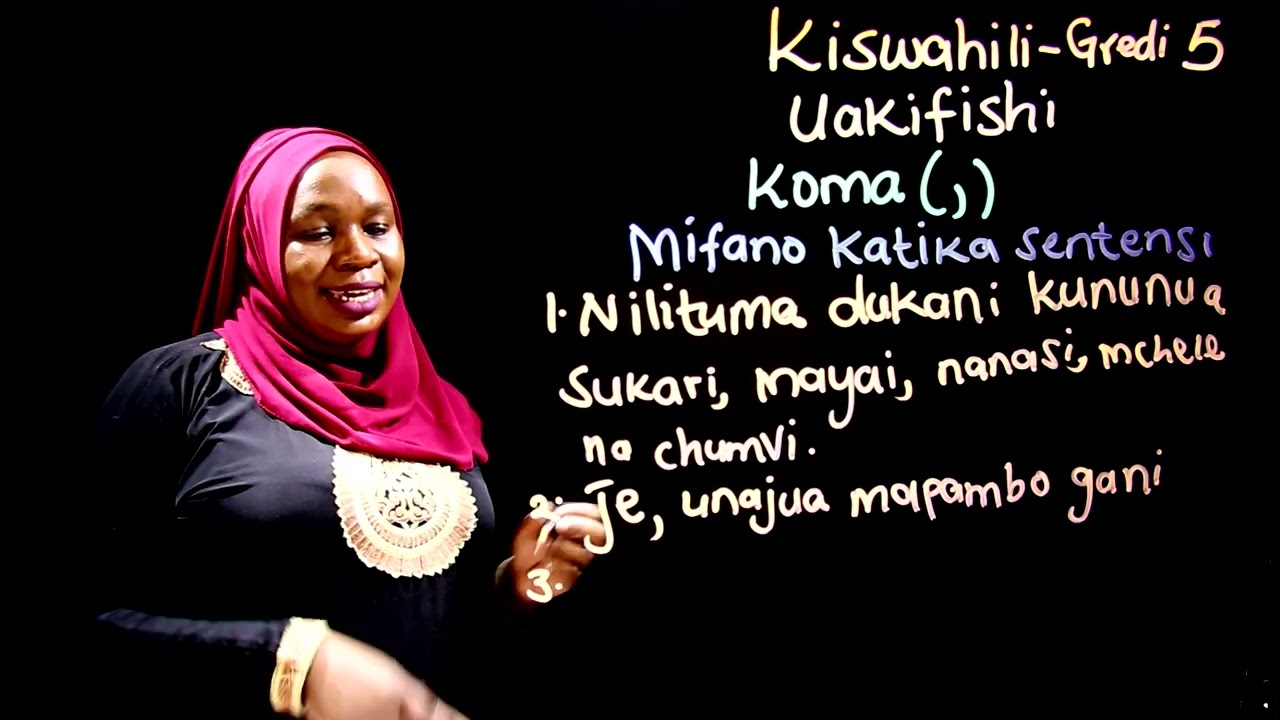 Kiswahili-Gredi 5
Uakifishi
Koma (,)
Mifano katika sentensi
1. Nilituma dukani kununua
Sukari, mayai, nanasi, mchele
na chumvi.
2. Je, unajua mapambo gani
3.